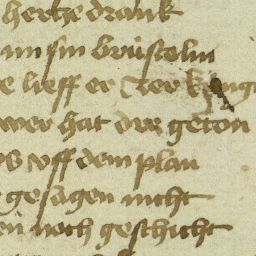 hertze dranck
im sin brüstelin
lieff er
wer hat der geton
vff dem plan
gesagen nicht
noch geschicht